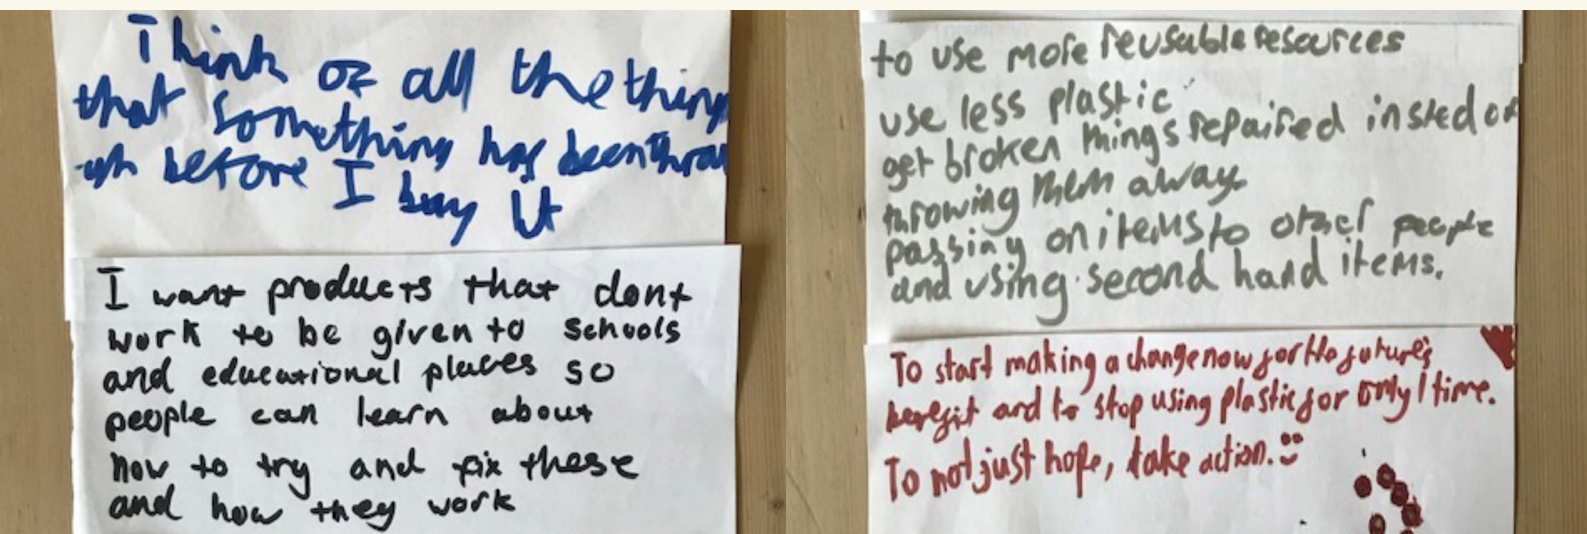 Think of all the thing
that something has been throu
gh before I buy it
I want products that dont
work to be given to schools
and educational places so
people can learn about
how to try and fix these
and how they work
to use more reusable resources
use less plastic
get broken things repaired insted of
throwing them away
passing on items to other people
and using second hand items.
To start making a change now for the future's
benefit and to stop using plastic for only 1 time.
To not just hope, take action.